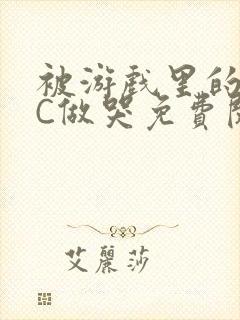 被游戏里的
C做哭免費閱
艾麗莎